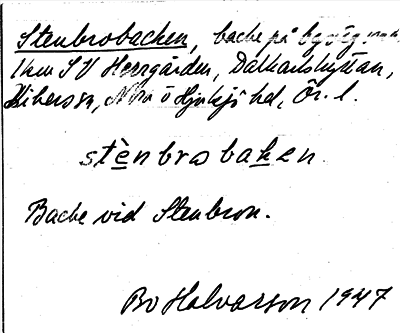 Stenbrobacken, backe på bygdeväg
1 km SV Herrgården, Dalkarlshyttan,
Kihers sn, Nora o Hjulsjö hd, Ör. l.
stènbrobaken.
Backe vid Stenbron.
Bo Halvarson 1947